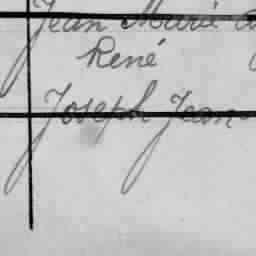 Jean Marie
René
Joseph Jean